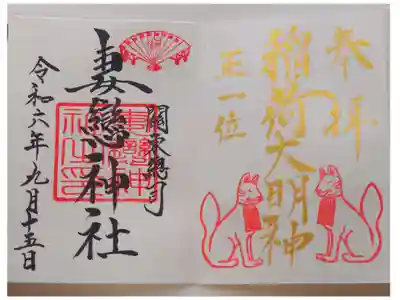 奉拝
稲荷大明神
正一位
關東惣司
妻戀神社
令和六年九月十五日